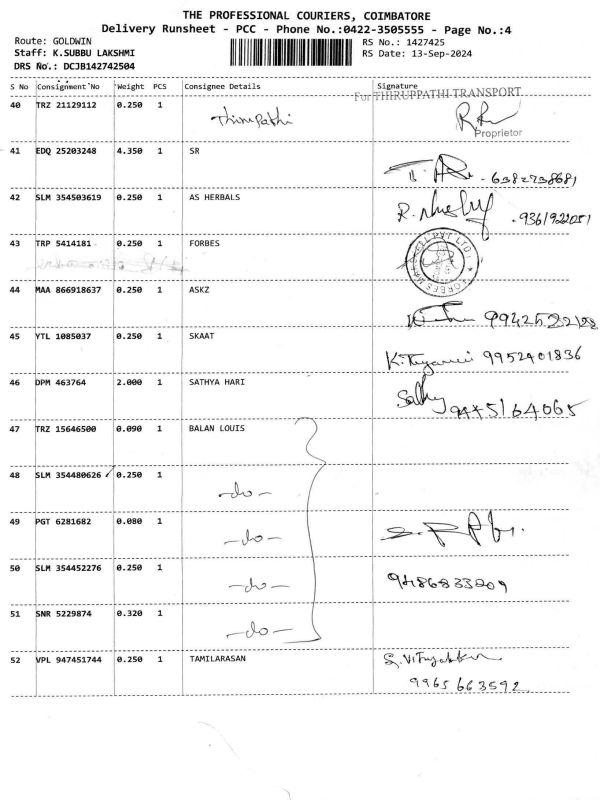 THE PROFESSIONAL COURIERS, COIMBATORE
Delivery Runsheet - PCC - Phone No.:0422-3505555 - Page No.:4
Route: GOLDWIN RS No.: 1427425
Staff: K.SUBBU LAKSHMI RS Date: 13-Sep-2024
DRS No.: DCJB142742504
S No Consignment No Weight PCS Consignee Details Signature
For THIRUPPATHI TRANSPORT
40 TRZ 21129112 0.250 1 Thirupathi
Proprietor
41 EDQ 25203248 4.350 1 SR
6382738681
42 SLM 354503619 0.250 1 AS HERBALS
9361922051
43 TRP 5414181 0.250 1 FORBES
44 MAA 866918637 0.250 1 ASKZ
45 YTL 1085037 0.250 1 SKAAT
9952401836
46 DPM 463764 2.000 1 SATHYA HARI
Sathy 9445164065
47 TRZ 15646500 0.090 1 BALAN LOUIS
48 SLM 354480626 ✓ 0.250 1 -do-
49 PGT 6281682 0.080 1 -do-
50 SLM 354452276 0.250 1 -do- 9486833209
51 SNR 5229874 0.320 1 -do-
52 VPL 947451744 0.250 1 TAMILARASAN
9965663592